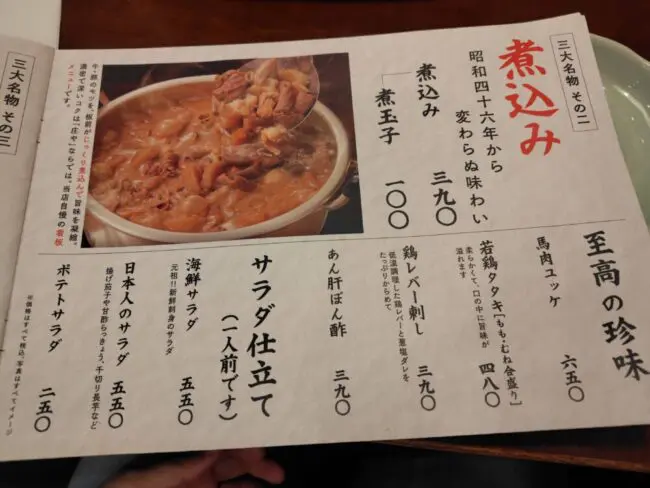 三大名物 その二
煮込み
昭和四十六年から
変わらぬ味わい
煮込み 三九〇
煮玉子 一〇〇
牛・豚のモツを、板前がじっくり煮込んで旨味を凝縮。
濃密で深いコクは「庄や」ならでは。当店自慢の看板
メニューです。
至高の珍味
馬肉ユッケ 六五〇
若鶏タタキ[もも・むね合盛り] 四八〇
柔らかくて、口の中に旨味が
溢れます
鶏レバー刺し 三九〇
低温調理した鶏レバーと葱塩ダレを
たっぷりからめて
あん肝ぽん酢 三九〇
サラダ仕立て
(一人前です)
海鮮サラダ 五五〇
元祖!!新鮮刺身のサラダ
日本人のサラダ 五五〇
揚げ茄子や甘酢らっきょう、千切り長芋など
ポテトサラダ 二五〇
※価格はすべて税込、写真はすべてイメージ
三大名物 その三